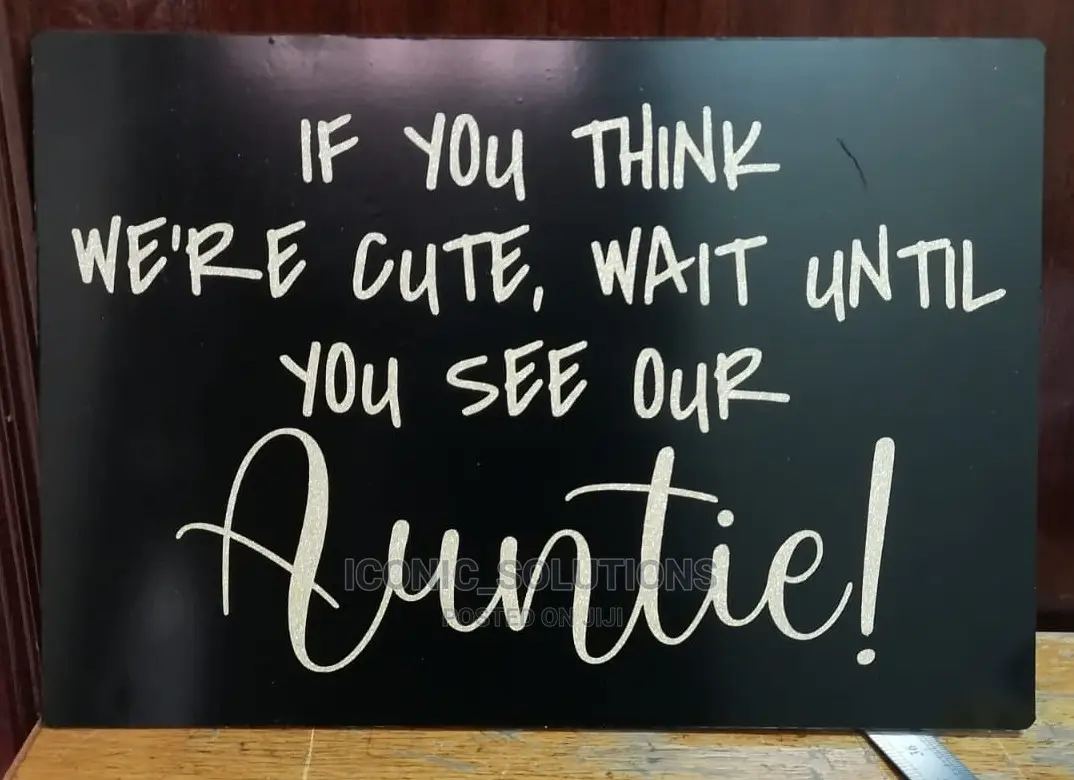 IF YOU THINK
WE'RE CUTE, WAIT UNTIL
YOU SEE OUR
Auntie!
ICONIC_SOLUTIONS
POSTED ON JIJI